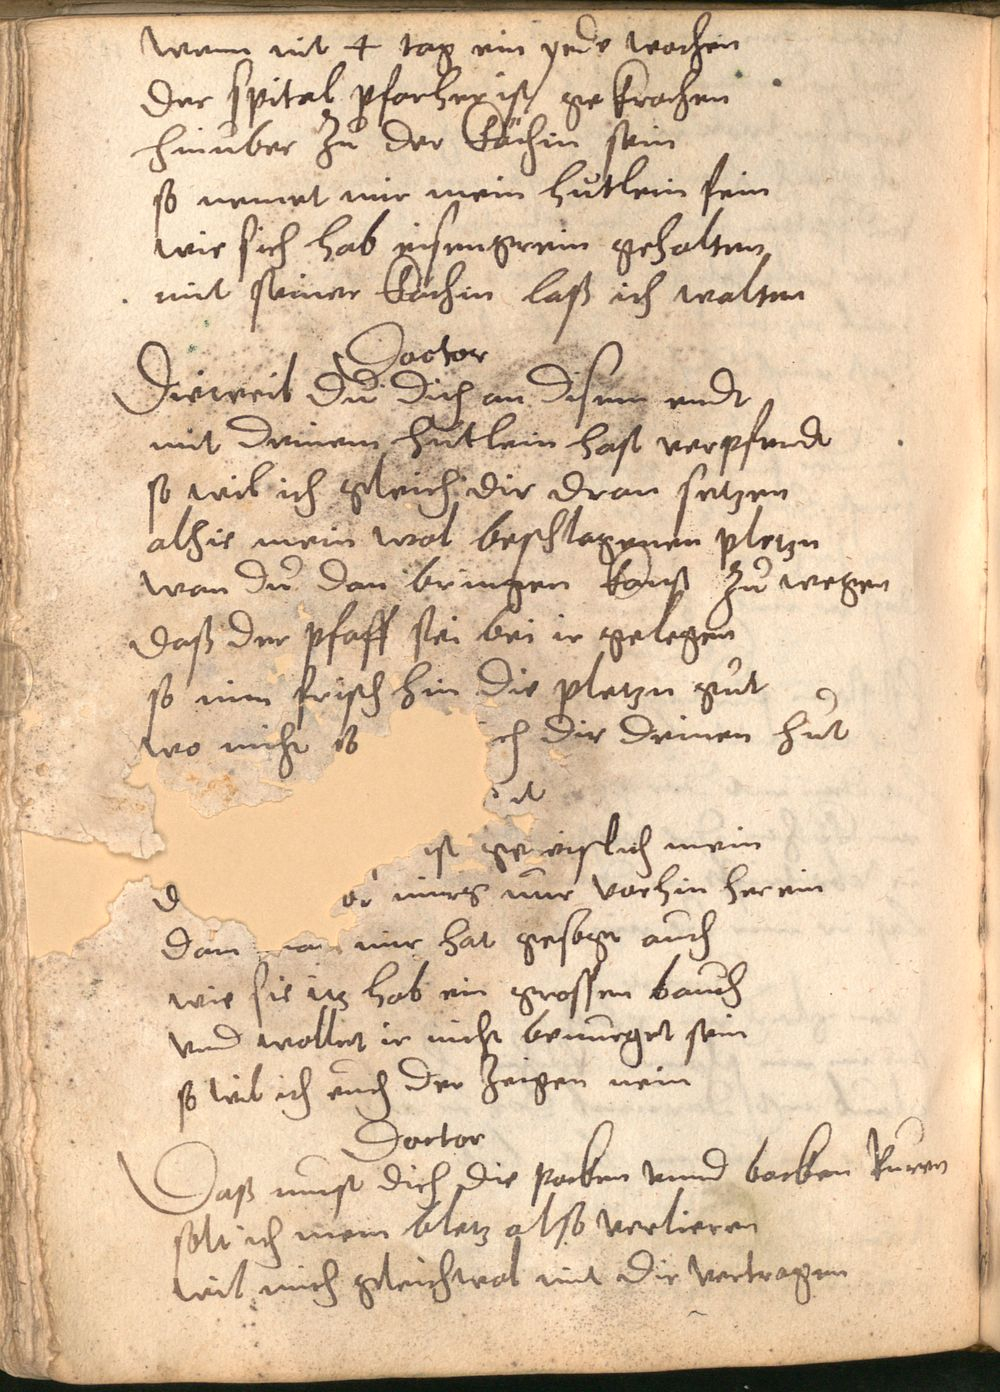 wenn nit 4 tag ein yede wochen
der spital pfarher ist gekrochen
hinuber zu der köchin sein
so nemet mir mein hutlein fein
wie sich hab eisengrein gehalten
mit seiner köchin laß ich walten
Doctor
Dieweil du dich an disem endt
mit deinem hutlein hast verpfendt
so wil ich gleich dir dran setzen
alhie mein wol beschlagenen pletzn
wan du dan bringen kanst zu wegen
daß der pfaff sei bei ir gelegen
so nim frisch hin die pletzn gut
wo nicht so ch dir deinen hut
ist gewislich mein
d nur vorhin herein
dan man mir hat gesagt auch
wie sie itz hab ein grossen bauch
vnd wollet ir nicht benuget sein
so wil ich euch der zeigen nein
Doctor
Daß must dich die pocken vnnd backen
solt ich mein bletz also verlieren
wil mich gleichwol mit dir vertragen